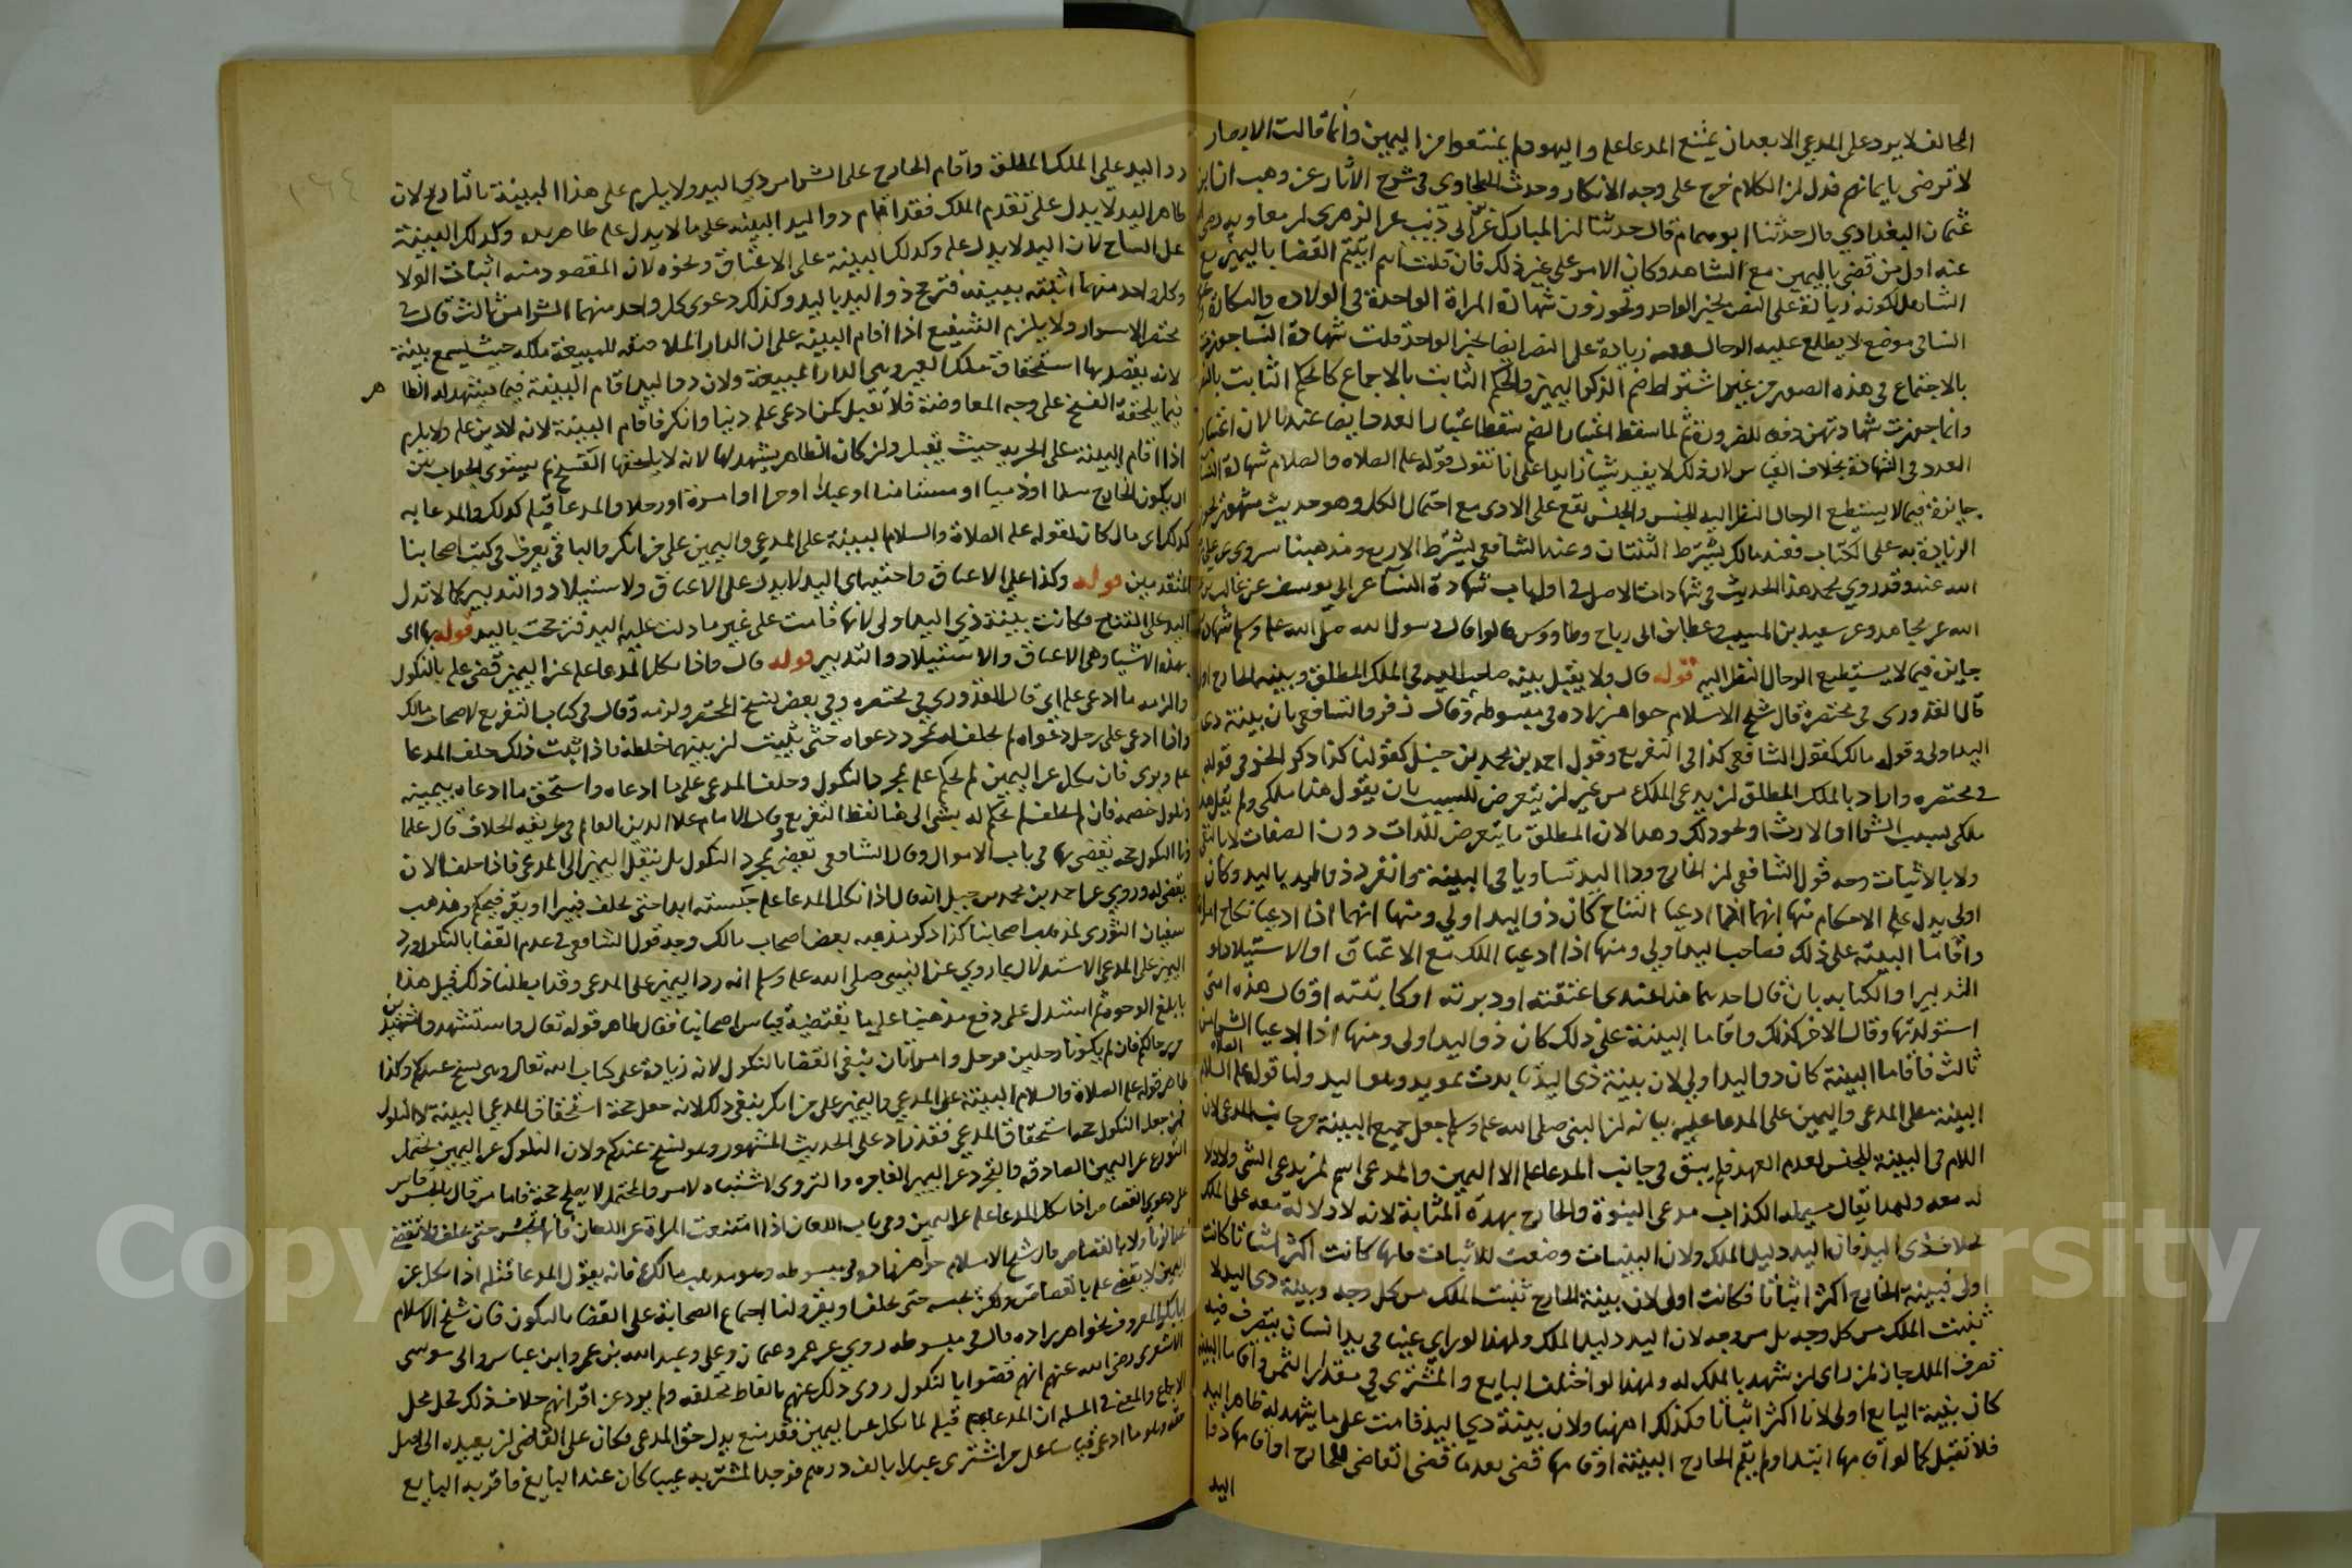 المخالف لا يرد على المدعي الا بعد ان يمتنع المدعا عليه واليهود لم يمتنعوا من اليمين وانما قالت الانصار
لا نرضى بايمانهم فدل ان الكلام خرج على وجه الانكار وحدث الطحاوي في شرح الاثار عن وهبان
عثمان البغدادي قال حدثنا ابو همام قال حدثنا ابن المبارك عن ابن ابي ذئب عن الزهري ان معاوية رضي
عنه اول من قضى باليمين مع الشاهد وكان الامر على غير ذلك فان قلت انتم ابيتم القضا باليمين مع
الشاهد لكونه زيادة على النص بخبر الواحد وتجوزون شهادة المراة الواحدة في الولادة والبكارة
النسا في موضع لا يطلع عليه الرجال زيادة على النص ايضا بخبر الواحد قلت شهادة النسا جوزت
بالاجماع في هذه الصور من غير اشتراط ضم الذكور اليهن والحكم الثابت بالاجماع كالحكم الثابت بالنص
وانما جوزت شهادتهن دفعا للضرورة ثم لما سقط اعتبار الضم سقط اعتبار العدد ايضا عندنا لان اعتبار
العدد في الشهادة بخلاف القياس لان ذلك لا يفيد شيا زايدا على انا نقول قوله عليه الصلاة والسلام شهادة النسا
جايزة فيما لا يستطيع الرجال النظر اليه للجنس والجنس يقع على الادنى مع احتمال الكل وهو حديث مشهور تجوز
الزيادة به على الكتاب فعند مالك يشترط الثنتان وعند الشافعي يشترط الاربع ومذهبنا مروي عن علي
الله عنه وقد روى محمد هذا الحديث في شهادات الاصل في اول باب شهادة النسا عن ابي يوسف عن غالب بن
الله عن مجاهد وعن سعيد بن المسيب وعطا بن ابي رباح وطاووس قالوا قال رسول الله صلى الله عليه وسلم شهادة
جايزة فيما لا يستطيع الرجال النظر اليه قوله قال ولا يقبل بينة صاحب اليد في الملك المطلق وبينة الخارج اولى
قال القدوري في مختصره قال شيخ الاسلام خواهر زاده في مبسوطه وقال زفر والشافعي بان بينة ذي
اليد اولى وقول مالك كقول الشافعي كذا في التفريع وقول احمد بن محمد بن حنبل كقولنا كذا ذكر الخرقي في قوله
في مختصره واراد بالملك المطلق ان يدعي الملك من غير ان يتعرض للسبب بان يقول هذا ملكي ولم يقل هذا
ملكي بسبب الشرا او الارث او نحو ذلك وهذا لان المطلق ما يتعرض للذات دون الصفات لا بالنفي
ولا بالاثبات وجه قول الشافعي ان الخارج وذا اليد تساويا في البينة وانفرد ذو اليد باليد وكان
اولى يدل عليه الاحكام منها انهما اذا ادعيا النتاج كان ذو اليد اولى ومنها انهما اذا ادعيا نكاح امراة
واقاما البينة على ذلك فصاحب اليد اولى ومنها اذا ادعيا الملك مع الاعتاق او الاستيلاد او
التدبير او الكتابة بان قال احدهما هذا عبدي اعتقته او دبرته او كاتبته او قال هذه امتي
استولدتها وقال الاخر كذلك واقاما البينة على ذلك كان ذو اليد اولى ومنها اذا ادعيا الشرا من
ثالث فاقاما البينة كان ذو اليد اولى لان بينة ذي اليد تايدت بمويد وهو اليد ولنا قوله عليه الصلاة السلام
البينة على المدعي واليمين على المدعا عليه بيانه ان النبي صلى الله عليه وسلم جعل جميع البينة من جانب المدعي لان
اللام في البينة للجنس لعدم العهد فلم يبق في جانب المدعا عليه الا اليمين والمدعي اسم لمن يدعي الشي ولا دلالة
له معه ولهذا يقال مسيلمة الكذاب مدعي النبوة والخارج بهذه المثابة لانه لا دلالة معه على الملك
بخلاف ذي اليد فان اليد دليل الملك ولان البينات وضعت للاثبات فايها كانت اكثر اثباتا كانت
اولى فبينة الخارج اكثر اثباتا فكانت اولى لان بينة الخارج تثبت الملك من كل وجه وبينة ذي اليد لا
تثبت الملك من كل وجه بل من وجه لان اليد دليل الملك ولهذا لو راى عينا في يد انسان يتصرف فيه
تصرف الملاك جاز لمن راى ان يشهد بالملك له ولهذا لو اختلف البايع والمشتري في مقدار الثمن واقاما البينة
كان بينة البايع اولى لانها اكثر اثباتا وكذلك هاهنا ولان بينة ذي اليد قامت على ما يشهد له ظاهر اليد
فلا تقبل كما لو اقامها ابتدا ولم يقم الخارج البينة او اقامها قضي بعد ما قضى القاضي للخارج او اقامها ذو
اليد
رد اليد على الملك المطلق واقام الخارج على الشرا من ذي اليد ولا يلزم على هذا البينة بالتاريخ لان
ظاهر اليد لا يدل على تقدم الملك فقد اقام ذو اليد البينة على ما لا يدل عليه ظاهر يده وكذلك البينة
على النتاج لان اليد لا يدل عليه وكذلك البينة على الاعتاق ونحوه لان المقصود منه اثبات الولا
وكل واحد منهما اثبته ببينته فترجح ذو اليد باليد وكذلك دعوى كل واحد منهما الشرا من ثالث قال في
مختصر الاسرار ولا يلزم الشفيع اذا اقام البينة على ان الدار الملاصقة للمبيعة ملكه حيث يسمع بينة
لانه يقصد بها استحقاق ملك الغير وهي الدار المبيعة ولان ذو اليد اقام البينة فيما يشهد له الظا هر
فيما يلحقه الفسخ على وجه المعاوضة فلا تقبل كمن ادعي عليه دينا وانكر فاقام البينة لانه لا دين عليه ولا يلزم
اذا اقام البينة على الحرية حيث يقبل وان كان الظاهر يشهد لها لانه لا يلحقها الفسخ ثم يستوي الجواب بين
ان يكون الخارج مسلما او ذميا او مستامنا او عبدا او حرا او امراة او رجلا والمدعا قبله كذلك والمدعا به
كذلك اي مال كان لقوله عليه الصلاة والسلام البينة على المدعي واليمين على من انكر والباقي يعرف في كتب اصحابنا
المتقدمين قوله وكذا على الاعتاق واختيها اي اليد لا يدل على الاعتاق ولا ستيلاد والتدبير كما لا تدل
اليد على النتاج فكانت بينة ذي اليد اولى لانها قامت على غير ما دلت عليه اليد فترجحت باليد قوله بها اي
بهذه الاشيا وهي الاعتاق والاستيلاد والتدبير قوله قال واذا نكل المدعا عليه عن اليمين قضي عليه بالنكول
والزمه ما ادعي عليه اي قال القدوري في مختصره وفي بعض نسخ المختصر ولزمه وقال في كتاب التفريع لاصحاب مالك
واذا ادعى على رجل دعواه لم يحلف له بمجرد دعواه حتى يثبت ان بينهما خلطة فاذا ثبت ذلك حلف المدعا
عليه وبرئ فان نكل عن اليمين لم يحكم عليه بمجرد النكول وحلف المدعي على ما ادعاه واستحق ما ادعاه بيمينه
ونكول خصمه فان لم يحلف لم يحكم له بشي الى هنا لفظ التفريع وقال الامام علا الدين العالم في طريقة الخلاف قال علما
ونا النكول حجة يقضى بها في باب الاموال وقال الشافعي لا يقضي بمجرد النكول بل ينتقل اليمين الى المدعي فاذا حلف الان
يقضي له وروي عن احمد بن محمد بن حنبل انه قال اذا نكل المدعا عليه حبسته ابدا حتى يحلف فيبرا او يقر فيحكم ومذهب
سفيان الثوري كمذهب اصحابنا كذا ذكر مذهبه بعض اصحاب مالك وجه قول الشافعي في عدم القضا بالنكول ورد
اليمين على المدعي الاستدلال بما روي عن النبي صلى الله عليه وسلم انه رد اليمين على المدعي وقد ابطلنا ذلك قبل هذا
بابلغ الوجوه ثم استدل على دفع مذهبنا على ما يقتضيه قياس اصحابنا فقال ظاهر قوله تعالى واستشهدوا شهيدين
من رجالكم فان لم يكونا رجلين فرجل وامراتان ينفي القضا بالنكول لانه زيادة على كتاب الله تعالى وهي نسخ عندكم وكذا
ظاهر قوله عليه الصلاة والسلام البينة على المدعي واليمين على من انكر ينفي ذلك لانه جعل حجة استحقاق المدعي البينة لا النكول
فمن جعل النكول حجة استحقاق المدعي فقد زاد على الحديث المشهور وهو نسخ عندكم ولان النكول عن اليمين يحتمل
التورع عن اليمين الصادقة والتحرج عن اليمين الفاجرة والتروي لاشتباه الامر والمحتمل لا يصلح حجة فاما من قال بالحبس قاس
على دعوى القصاص اذا نكل المدعا عليه عن اليمين وفي باب اللعان اذا امتنعت المراة عن اللعان فانها تحبس حتى تحلف ولا تقضي
عليها بالزنا ولا بالقصاص قال شيخ الاسلام خواهر زاده في مبسوطه وهو مذهب مالك فانه يقول المدعا قبله اذا نكل عن
اليمين لا يقضي عليه بالقصاص ولكن يحبسه حتى يحلف او يقر ولنا اجماع الصحابة على القضا بالنكول فان شيخ الاسلام
ابا بكر المعروف بخواهر زاده قال في مبسوطه روي عن عمر وعثمان وعلي وعبد الله بن عمر وابن عباس وابي موسى
الاشعري رضي الله عنهم انهم قضوا بالنكول روي ذلك عنهم بالفاظ مختلفة ولم يرد عن اقرانهم خلاف ذلك فحل محل
الاجماع والمعنى في المسلة ان المدعا عليه قبل لما نكل عن اليمين فقد منع بدل حق المدعي وكان على القاضي ان يعيده الى اصل
حقه وهو ما ادعى قياسا على من اشترى عبدا بالف درهم فوجد المشتري به عيبا كان عند البايع فاقر به البايع